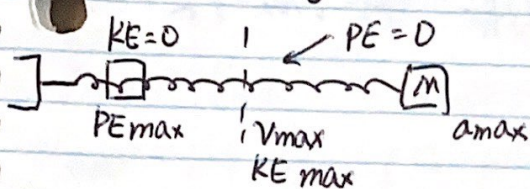 KE=0 PE=0
M
PEmax Vmax amax
KE max